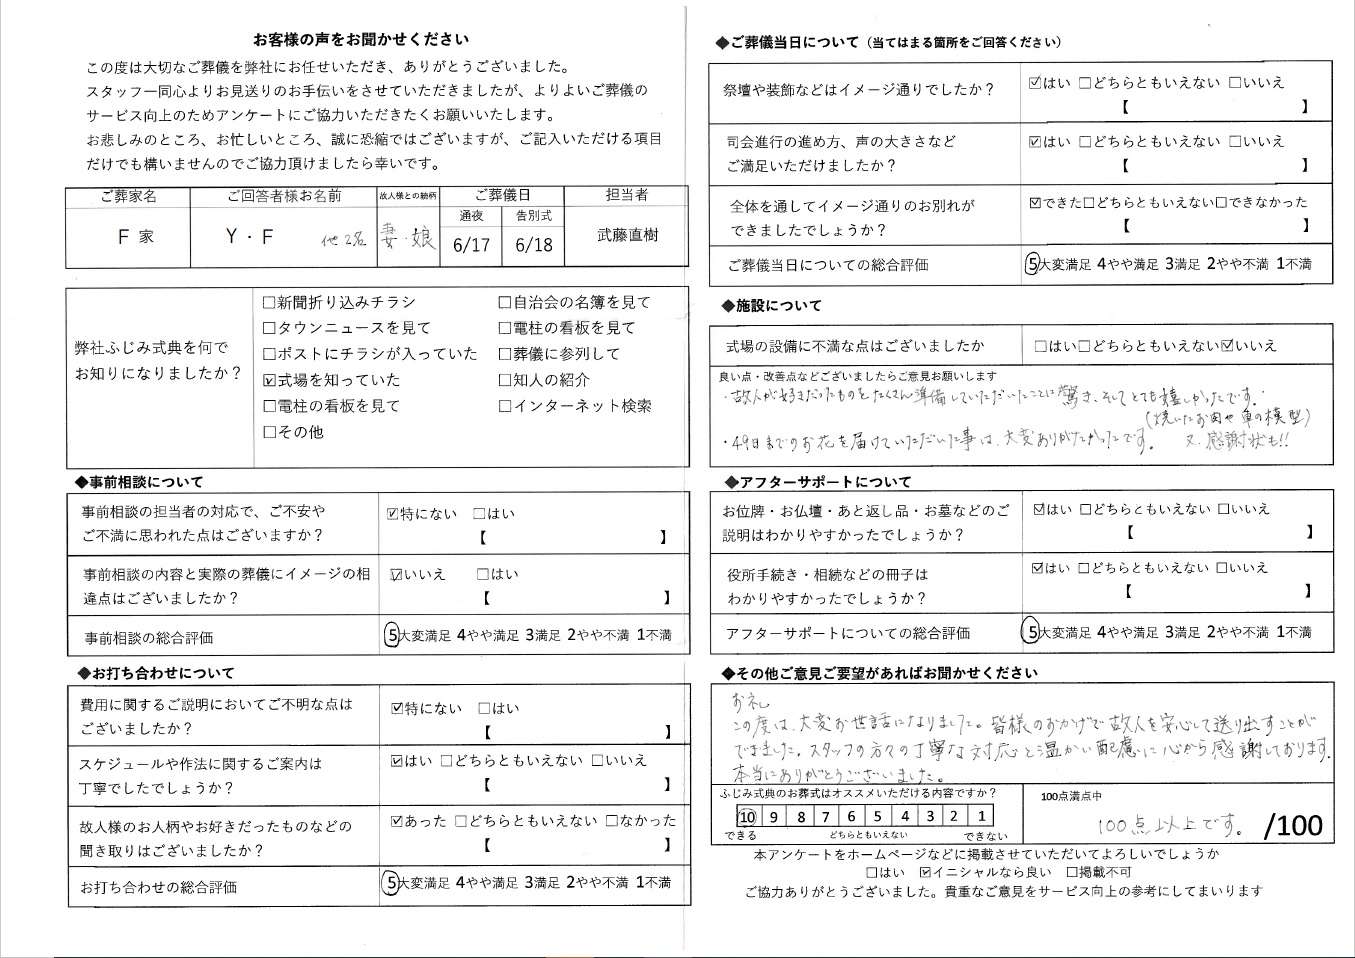 お客様の声をお聞かせください
この度は大切なご葬儀を弊社にお任せいただき、ありがとうございました。
スタッフ一同心よりお見送りのお手伝いをさせていただきましたが、よりよいご葬儀の
サービス向上のためアンケートにご協力いただきたくお願いいたします。
お悲しみのところ、お忙しいところ、誠に恐縮ではございますが、ご記入いただける項目
だけでも構いませんのでご協力頂けましたら幸いです。
ご葬家名 ご回答者様お名前 故人様との続柄 ご葬儀日 担当者
通夜 告別式
F 家 Y・F 他2名 妻・娘 6/17 6/18 武藤直樹
弊社ふじみ式典を何で
お知りになりましたか？
□新聞折り込みチラシ □自治会の名簿を見て
□タウンニュースを見て □電柱の看板を見て
□ポストにチラシが入っていた □葬儀に参列して
☑式場を知っていた □知人の紹介
□電柱の看板を見て □インターネット検索
□その他
◆事前相談について
事前相談の担当者の対応で、ご不安や
ご不満に思われた点はございますか？
☑特にない □はい
【 】
事前相談の内容と実際の葬儀にイメージの相
違点はございましたか？
☑いいえ □はい
【 】
事前相談の総合評価
⑤大変満足 4やや満足 3満足 2やや不満 1不満
◆お打ち合わせについて
費用に関するご説明においてご不明な点は
ございましたか？
☑特にない □はい
【 】
スケジュールや作法に関するご案内は
丁寧でしたでしょうか？
☑はい □どちらともいえない □いいえ
【 】
故人様のお人柄やお好きだったものなどの
聞き取りはございましたか？
☑あった □どちらともいえない □なかった
【 】
お打ち合わせの総合評価
⑤大変満足 4やや満足 3満足 2やや不満 1不満
◆ご葬儀当日について（当てはまる箇所をご回答ください）
祭壇や装飾などはイメージ通りでしたか？
☑はい □どちらともいえない □いいえ
【 】
司会進行の進め方、声の大きさなど
ご満足いただけましたか？
☑はい □どちらともいえない □いいえ
【 】
全体を通してイメージ通りのお別れが
できましたでしょうか？
☑できた□どちらともいえない□できなかった
【 】
ご葬儀当日についての総合評価
⑤大変満足 4やや満足 3満足 2やや不満 1不満
◆施設について
式場の設備に不満な点はございましたか
□はい□どちらともいえない☑いいえ
良い点・改善点などございましたらご意見お願いします
・故人が好きだったものをたくさん準備していただいたことに驚き、そしてとても嬉しかったです。
(焼いたお肉や車の模型)
・49日までのお花を届けていただいた事は、大変ありがたかったです。 又、感謝状も!!
◆アフターサポートについて
お位牌・お仏壇・あと返し品・お墓などのご
説明はわかりやすかったでしょうか？
☑はい □どちらともいえない □いいえ
【 】
役所手続き・相続などの冊子は
わかりやすかったでしょうか？
☑はい □どちらともいえない □いいえ
【 】
アフターサポートについての総合評価
⑤大変満足 4やや満足 3満足 2やや不満 1不満
◆その他ご意見ご要望があればお聞かせください
お礼
この度は、大変お世話になりました。皆様のおかげで故人を安心して送り出すことが
できました。スタッフの方々の丁寧な対応と温かい配慮に心から感謝しております。
本当にありがとうございました。
ふじみ式典のお葬式はオススメいただける内容ですか？
⑩ 9 8 7 6 5 4 3 2 1
できる どちらともいえない できない
100点満点中
100点以上です。 /100
本アンケートをホームページなどに掲載させていただいてよろしいでしょうか
□はい ☑イニシャルなら良い □掲載不可
ご協力ありがとうございました。貴重なご意見をサービス向上の参考にしてまいります